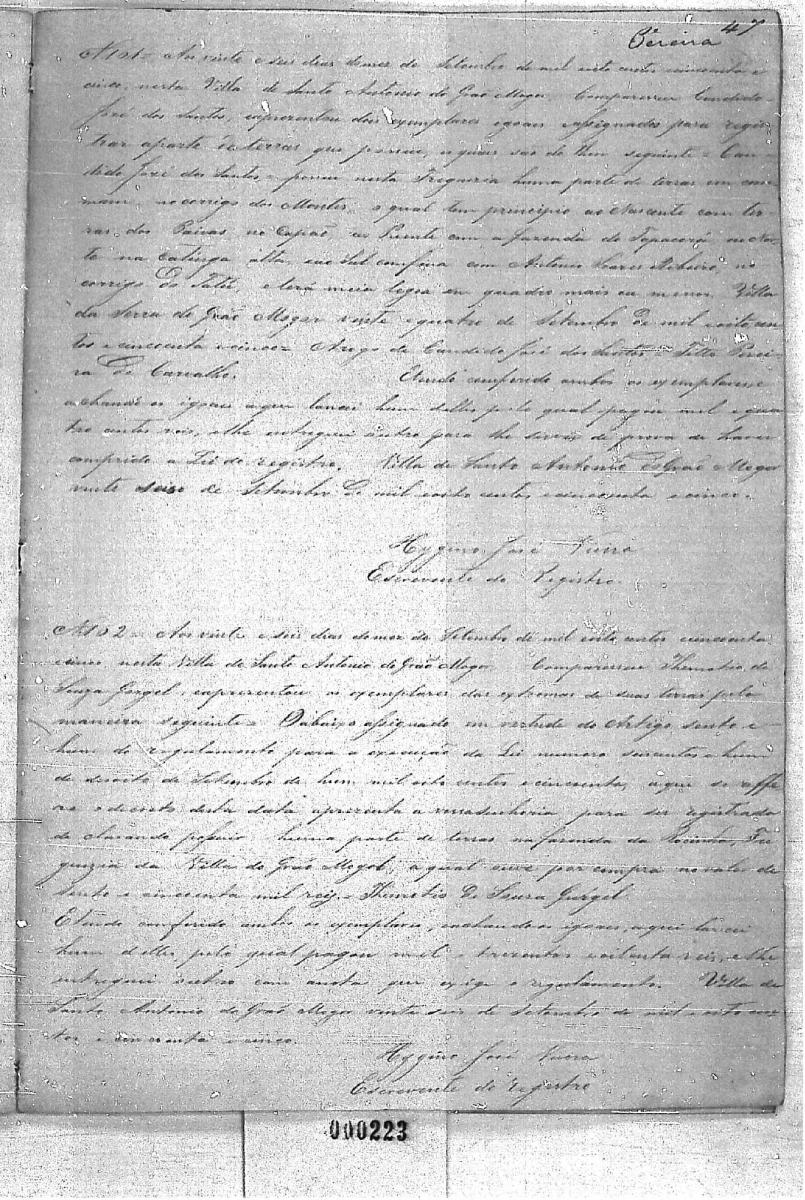 47
Pereira
N. 101 = Aos vinte e seis dias do mez de Setembro de mil oito centos cincoenta e
cinco, nesta Villa de Santo Antonio do Grão Mogor. Comparesseu Candido
José dos Santos, eaprezentou dois exemplares egoaes eassignados para regis-
trar aparte de terras que possue, aquaes são do theor seguinte = Can-
dido José dos Santos = possue nesta Freguezia huma parte de terras em com-
mum, no corrigo dos Montes, a qual tem principio ao Nascente com ter-
ras dos Paivas, no Capão, ao Puente com a fazenda do Tapacorá, ao Nor-
te na Catinga alta, eao Sul confina com Antonio Soares Ribeiro, no
corrigo do Tatú, eterá meia legoa em quadro mais ou menos. Villa
da Serra de Grão Mogor vinte equatro de Setembro de mil eoito cen-
tos e cincoenta ecinco = Arogo de Candido José dos Santos = Perei-
ra de Carvalho. Etendo conferido ambos os exemplares e
achando os igoaes aqui lancei hum delles pelo qual pagou mil e qua-
tro centos reis, elhe entreguei outro para lhe servir de prova de haver
comprido a Lei do registro. Villa de Santo Antonio do Grão Mogor
vinte seis de Setembro de mil eoito centos ecincoenta e cinco.
Hygino José Vieira
Escrevente do Registro.
N. 102 = Aos vinte e seis dias do mez de Setembro de mil oito centos cincoenta
cinco nesta Villa de Santo Antonio do Grão Mogor. Comparesseu Themotio de
Souza Gorgel, eaprezentou os exemplares das extremas de suas terras pela
maneira seguinte = Oabaixo assignado em vertude do Artigo sento e
hum do regulamento para a execução da Lei numero seiscentos e hum
de desoito de Setembro de hum mil oito centos e cincoenta, aque se reffe-
re odecreto desta data aprezenta a vossa senhoria para ser registrado
declarando possuir huma parte de terras na fazenda da Rocinha, Fre-
guezia da Villa do Grão Mogol, a qual ouve por compra no valor de
sento e cincoenta mil reis = Themotio de Souza Gurgel
Etendo conferido ambos os exemplares, eachando os igoaes, aqui lancei
hum delles, pelo qual pagou mil e trezentos e oitenta reis, elhe
entreguei outro com anota que exige o regulamento. Villa de
Santo Antonio do Grão Mogor vinte seis de Setembro de mil e oito cen-
tos e cincoenta ecinco.
Hygino José Vieira
Escrevente do registro
000223